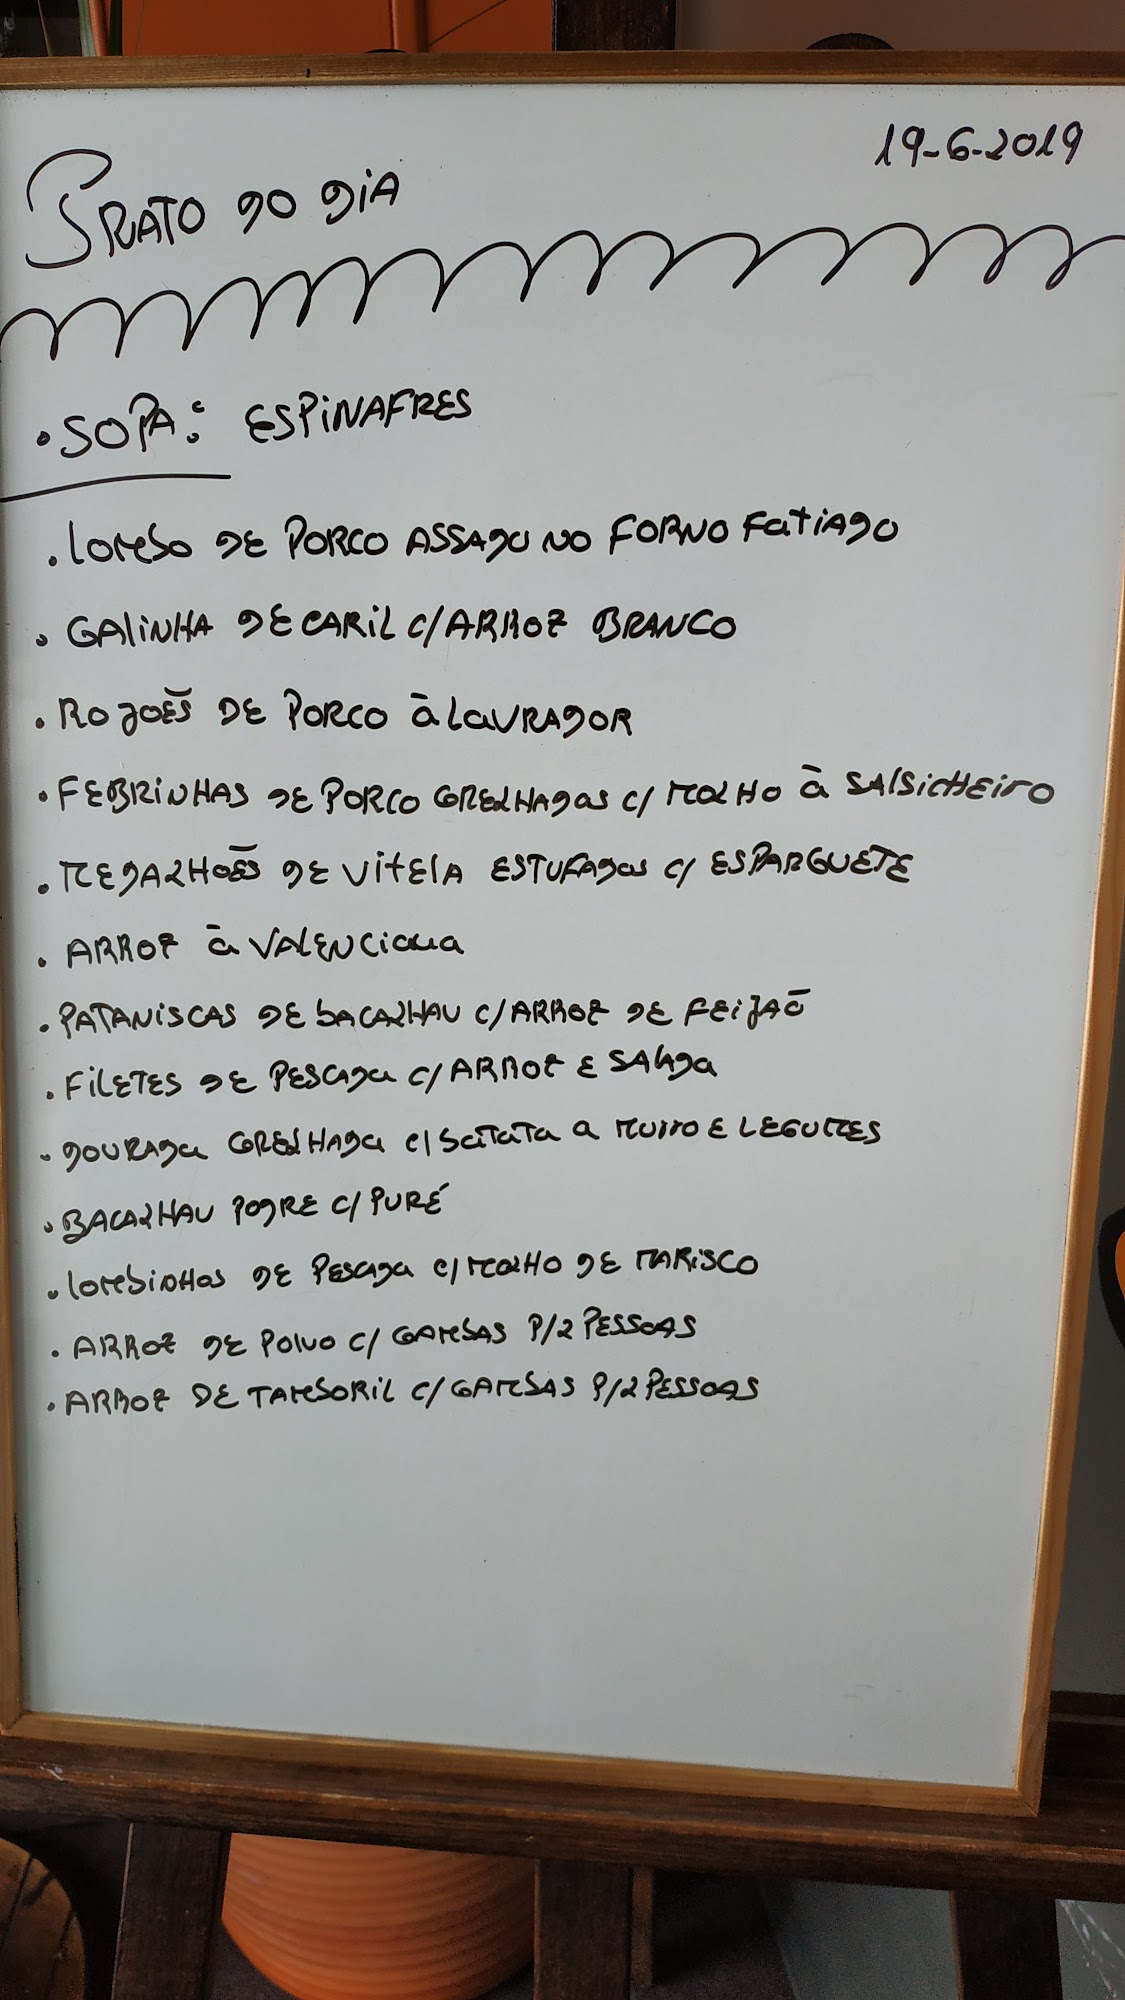 19-6-2019
PRATO DO DIA
• SOPA: ESPINAFRES
• LOMBO DE PORCO ASSADO NO FORNO FATIADO
• GALINHA DE CARIL C/ARROZ BRANCO
• ROJOES DE PORCO À LAVRADOR
• FEBRINHAS DE PORCO GRELHADAS C/ MOLHO À SALSICHEIRO
• MEDALHOES DE VITELA ESTUFADOS C/ ESPARGUETE
• ARROZ À VALENCIANA
• PATANISCAS DE BACALHAU C/ARROZ DE FEIJAO
• FILETES DE PESCADA C/ARROZ E SALADA
• DOURADA GRELHADA C/BATATA A MURRO E LEGUMES
• BACALHAU PODRE C/ PURÉ
• LOMBINHOS DE PESCADA C/MOLHO DE MARISCO
• ARROZ DE POLVO C/ GAMBAS P/2 PESSOAS
• ARROZ DE TAMBORIL C/GAMBAS P/2 PESSOAS